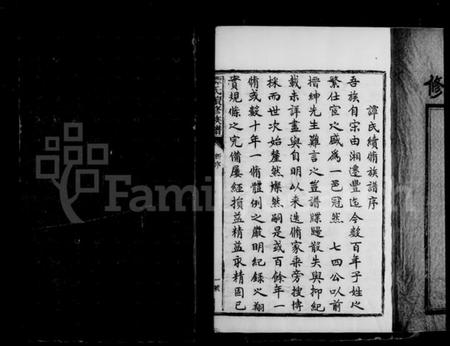 譚氏續脩族譜序
吾族自宗由湘遷豐迄今數百年子姓之
繁仕宦之盛為一邑冠然七四公以前
搢紳先生難言之豈譜牒散失與抑紀
載未詳盡與自明以來迭脩家乘旁搜博
採而世次始釐然燦然嗣是或百餘年一
脩或數十年一脩體例之嚴明紀錄之翔
實規條之完備屢經損益精益求精固已
氏續脩族譜
新序
一
修
Family